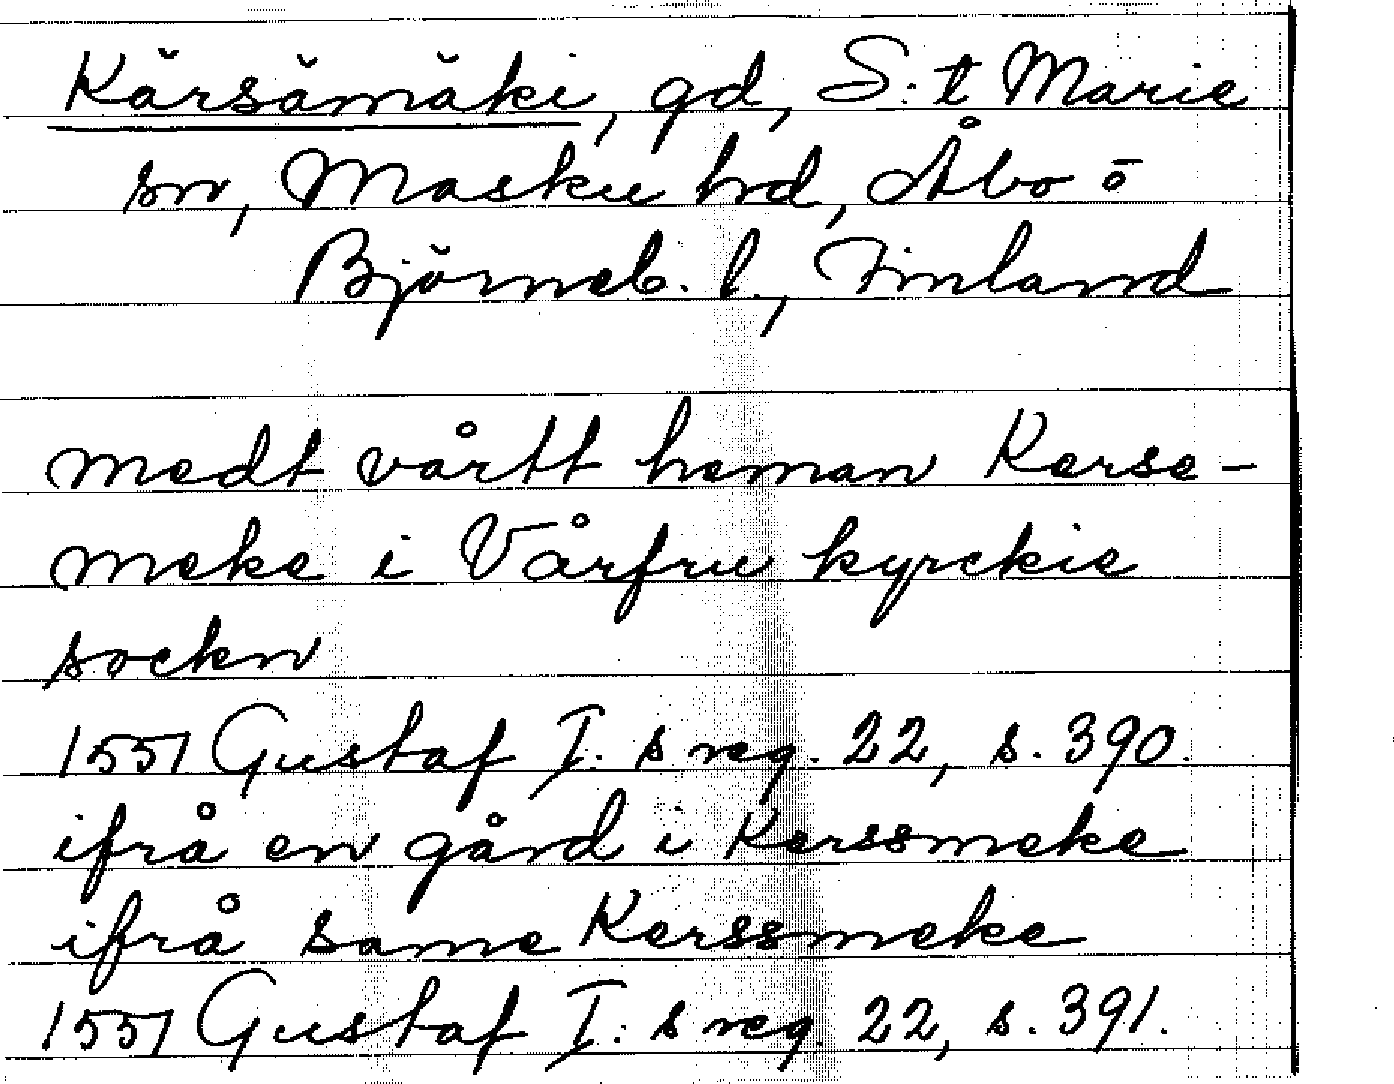 Kärsämäki, gd, S:t Marie
sn, Masku hd, Åbo o
Björneb. l., Finland
medt vårtt heman Kerse-
meke i Vårfru kyrckie
sockn
1551 Gustaf I:s reg. 22, s. 390.
ifrå en gård i Kerssmeke
ifrå same Kerssmeke
1551 Gustaf I:s reg. 22, s. 391.